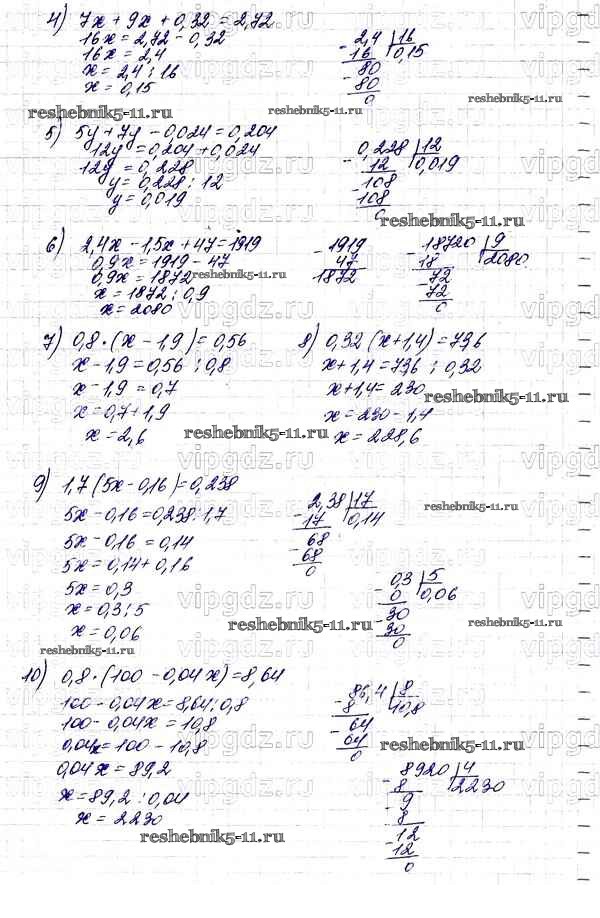 4) 7x + 9x + 0,32 = 2,72
16x = 2,72 - 0,32
16x = 2,4
x = 2,4 : 16
x = 0,15
2,4 | 16
- 16 | 0,15
80
- 80
0
reshebnik5-11.ru reshebnik5-11.ru
5) 5y + 7y - 0,024 = 0,204
12y = 0,204 + 0,024
12y = 0,228
y = 0,228 : 12
y = 0,019
0,228 | 12
- 12 | 0,019
108
- 108
0
reshebnik5-11.ru
6) 2,4x - 1,5x + 47 = 1919
0,9x = 1919 - 47
0,9x = 1872
x = 1872 : 0,9
x = 2080
- 1919
47
1872
- 18720 | 9
18 | 2080
- 72
72
0
reshebnik5-11.ru
7) 0,8 · (x - 1,9) = 0,56
x - 1,9 = 0,56 : 0,8
x - 1,9 = 0,7
x = 0,7 + 1,9
x = 2,6
8) 0,32 (x + 1,4) = 736
x + 1,4 = 736 : 0,32
x + 1,4 = 230
x = 230 - 1,4
x = 228,6
reshebnik5-11.ru
reshebnik5-11.ru
9) 1,7 (5x - 0,16) = 0,238
5x - 0,16 = 0,238 : 1,7
5x - 0,16 = 0,14
5x = 0,14 + 0,16
5x = 0,3
x = 0,3 : 5
x = 0,06
2,38 | 17
- 17 | 0,14
68
- 68
0
reshebnik5-11.ru
0,3 | 5
- 0 | 0,06
30
- 30
0
reshebnik5-11.ru reshebnik5-11.ru
reshebnik5-11.ru
10) 0,8 · (100 - 0,04x) = 8,64
100 - 0,04x = 8,64 : 0,8
100 - 0,04x = 10,8
0,04x = 100 - 10,8
0,04x = 89,2
x = 89,2 : 0,04
x = 2230
86,4 | 8
- 8 | 10,8
64
- 64
0
reshebnik5-11.ru
8920 | 4
- 8 | 2230
9
- 8
12
- 12
0
reshebnik5-11.ru
vipgdz.ru